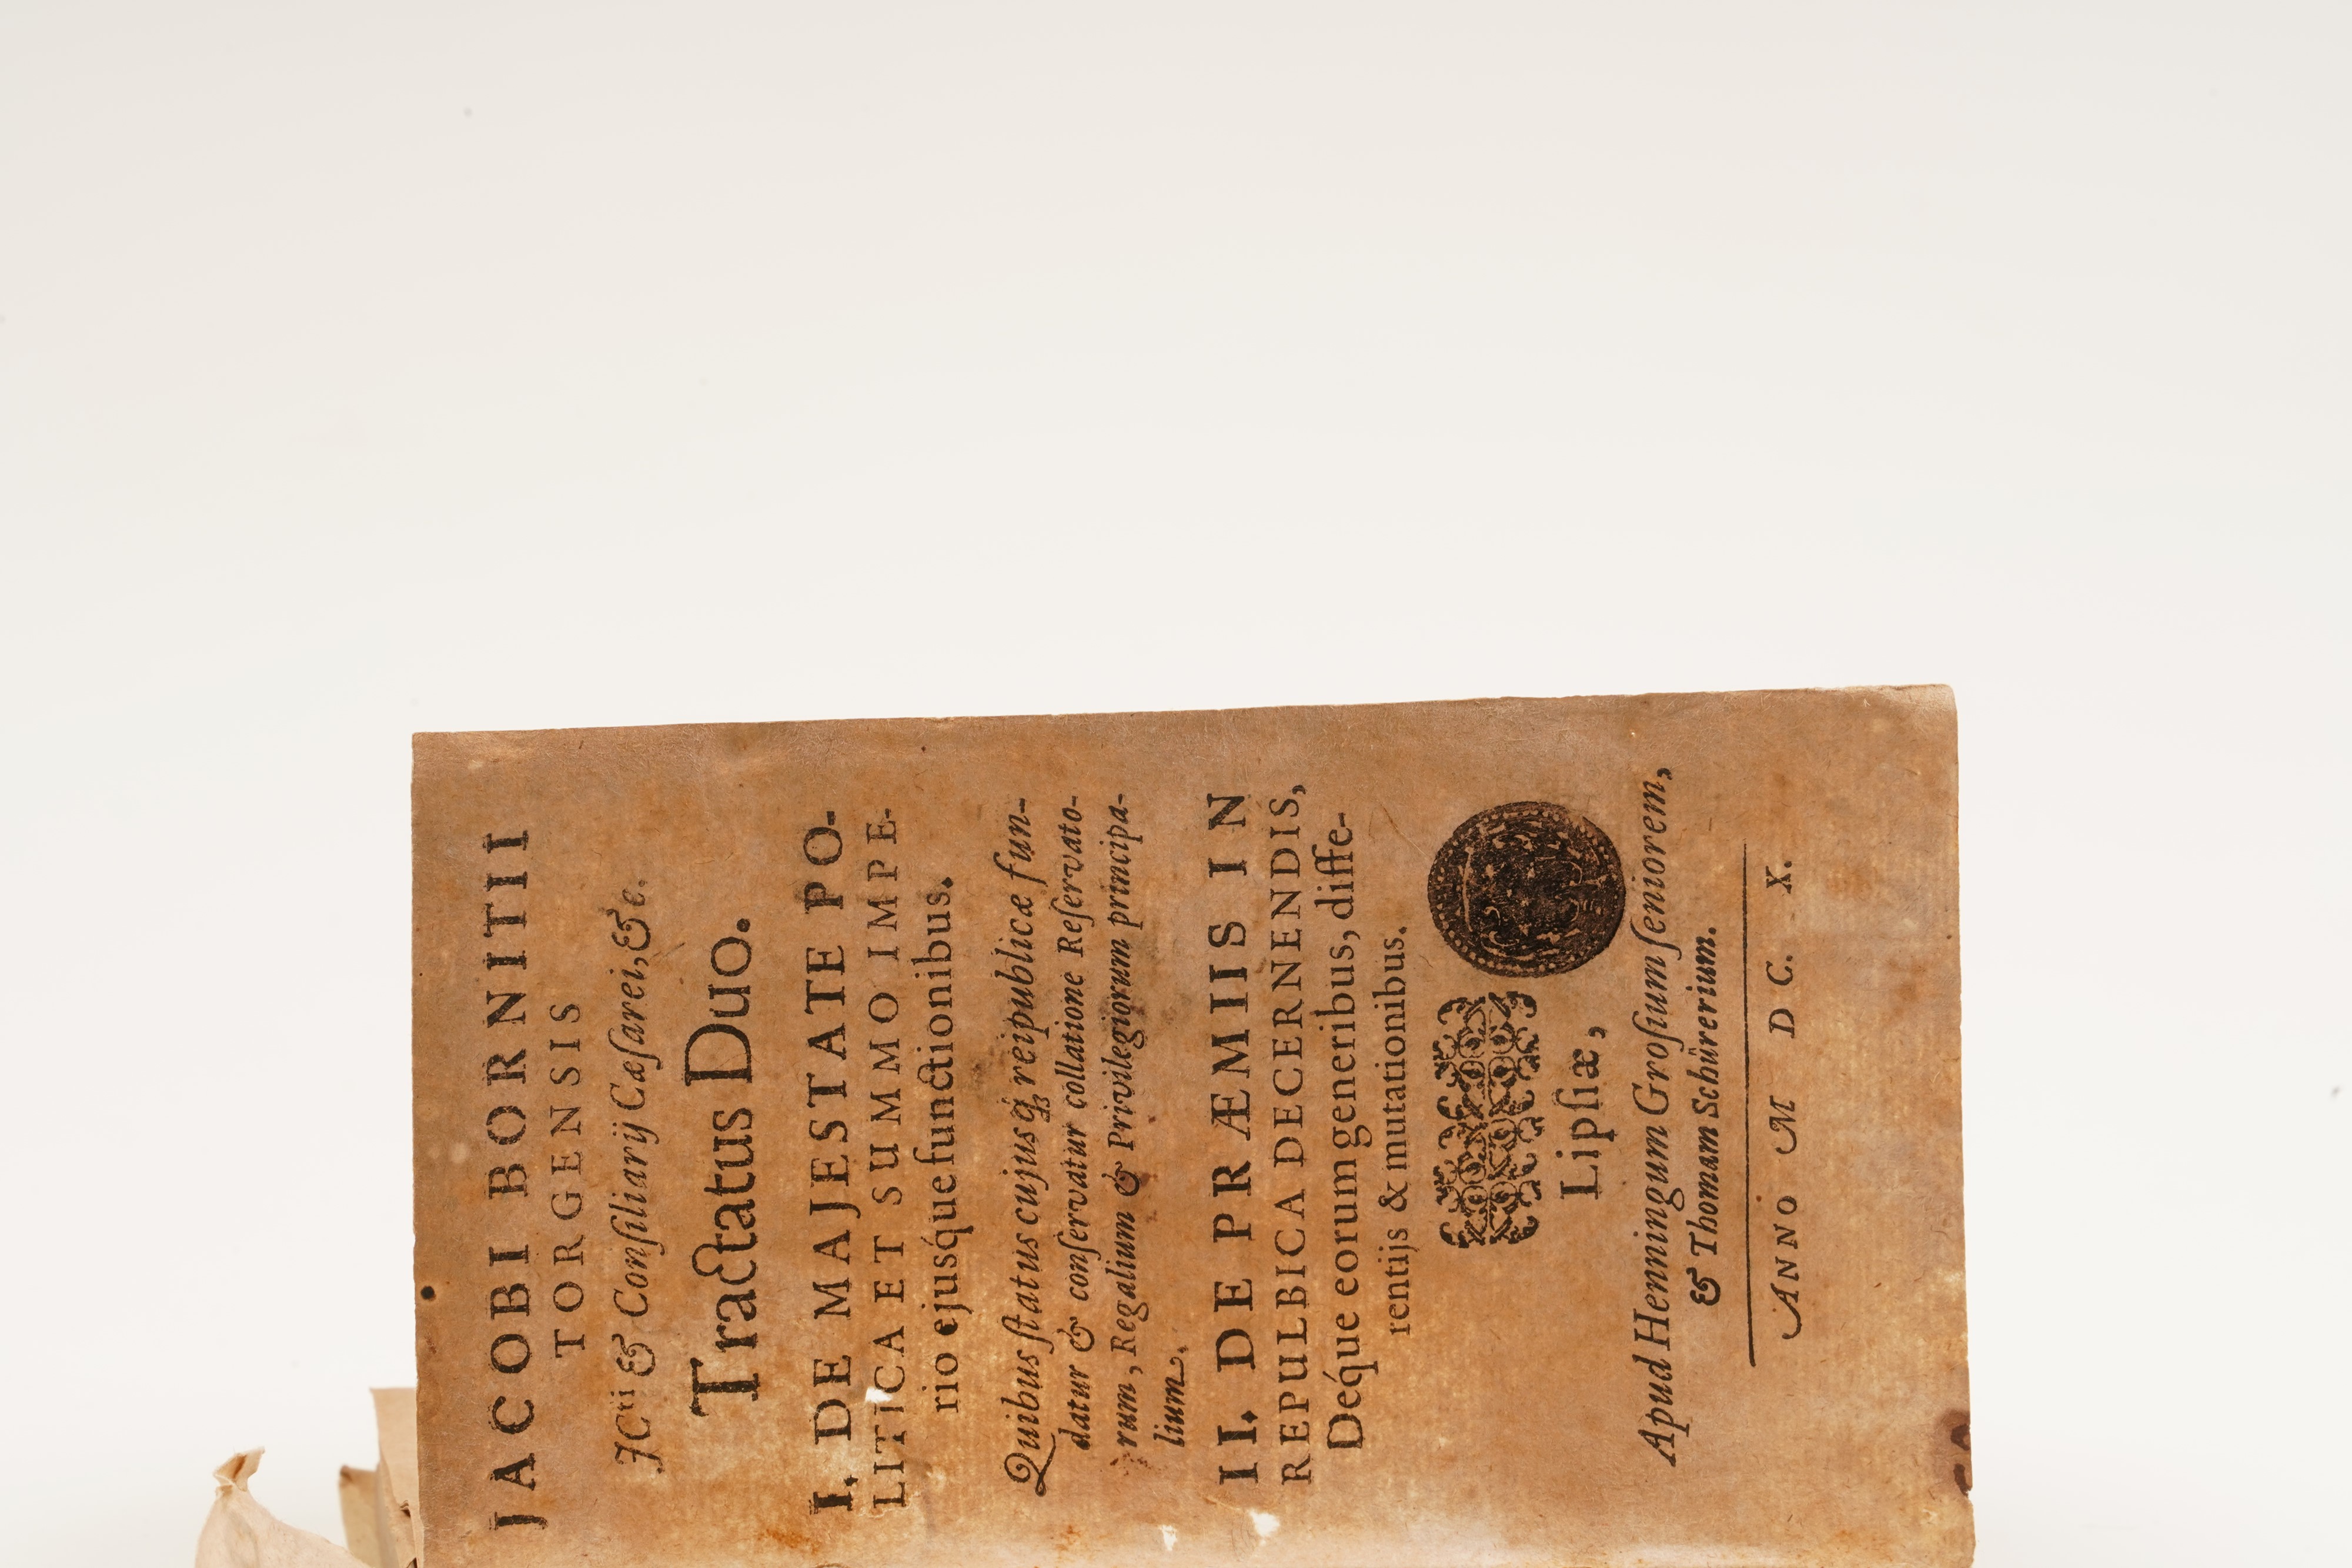 JACOBI BORNITII
TORGENSIS
JCti & Conſiliarij Cæſarei, &c.
Tractatus Duo.
I. DE MAJESTATE PO-
LITICA ET SUMMO IMPE-
rio ejusq́ue functionibus.
Quibus ſtatus cujusq; reipublicæ fun-
datur & conſervatur collatione Reſervato-
rum, Regalium & Privilegiorum principa-
lium.
II. DE PRÆMIIS IN
REPULBICA DECERNENDIS,
Deq́ue eorum generibus, diffe-
rentijs & mutationibus.
Lipſiæ,
Apud Henningum Groſium ſeniorem,
& Thomam Schürerium.
ANNO M DC. X.